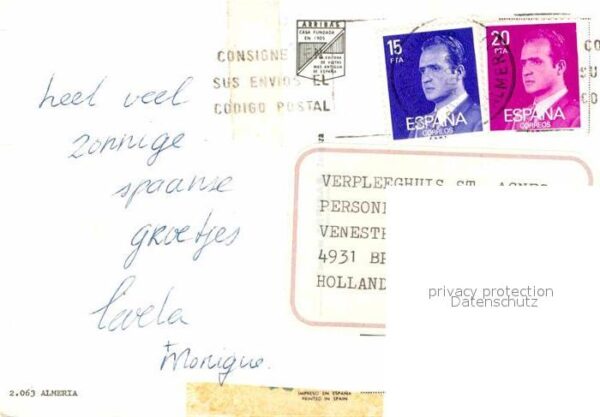 ARRIBAS
CASA FUNDADA
EN 1905
CONSIGNE EN
SUS ENVIOS EL
CODIGO POSTAL
15
PTA
ESPAÑA
CORREOS
20
PTA
ESPAÑA
CORREOS
ALMER
CO
SU
CO
heel veel
zonnige
spaanse
groetjes
+ Monique.
VERPLEEGHUIS ST.
PERSON
VENEST
4931
HOLLAND
privacy protection
Datenschutz
2.063 ALMERIA
IMPRESO EN ESPAÑA
PRINTED IN SPAIN